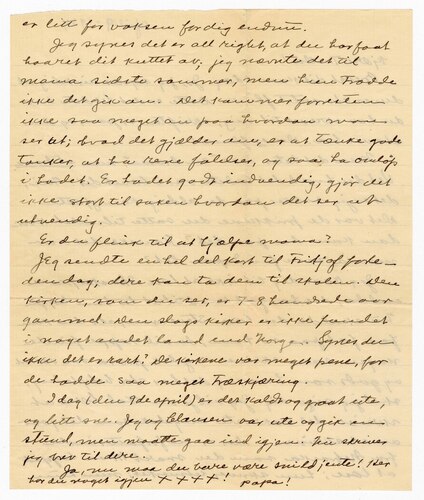 er litt for voksen for dig endnu.
Jeg synes det er all right, at du har faat
haaret dit kuttet av; jeg nævnte det til
mama sidste sommer, men hun trodde
ikke det gik an. Det kommer foresten
ikke saa meget an paa hvordan man
ser ut; hvad det gjælder om, er at tænke gode
tanker, at ha rene følelser, og saa ha omløp
i hodet. Er hodet godt indvendig, gjør det
ikke stort til saken hvordan det ser ut
utvendig.
Er du flink til at hjælpe mama?
Jeg sendte en hel del kort til Fritjof forle-
den dag; dere kan ta dem til skolen. Den
kirken, som du ser, er 7-8 hundrede aar
gammel. Den slags kirker er ikke fundet
i noget andet land end Norge. Synes du
ikke det er rart? De kirkene var meget pene, for
de hadde saa meget træskjæring.
I dag (den 9de april) er det koldt og graat ute,
og litt sne. Jeg og Clausen var ute og gik en
stund, men maatte gaa ind igjen. Nu skriver
jeg brev til dere.
Ja, nu maa du bare være snild jente! Her
har du noget igjen x x x x! papa!